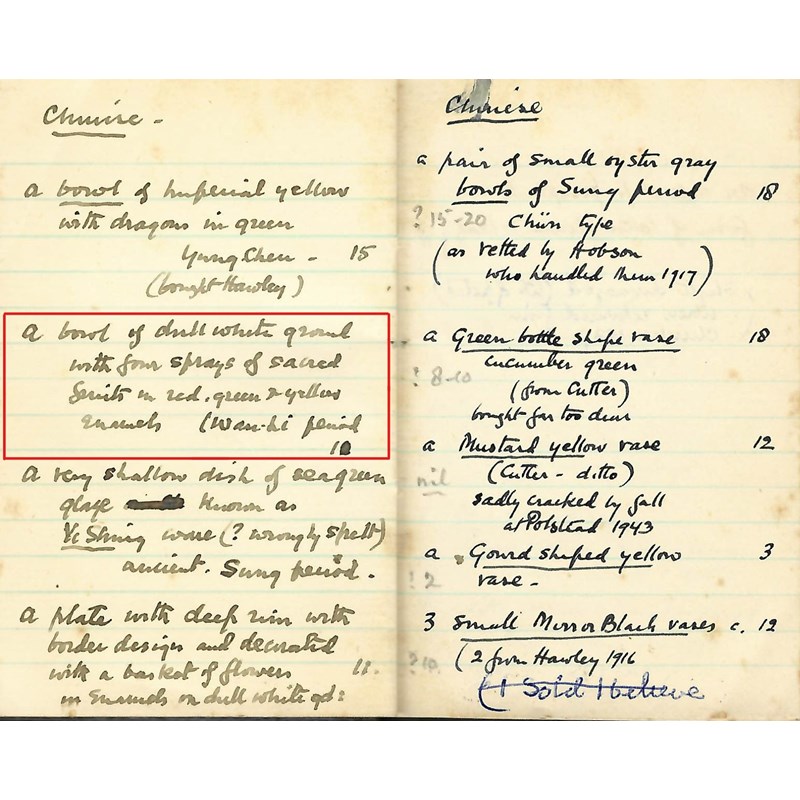 Chinese -
a bowl of Imperial yellow
with dragons in green
Yung Chen - 15
(bought Hawley)
a bowl of dull white ground
with four sprays of sacred
fruits in red, green & yellow
Enamels (Wan-li period
10
a very shallow dish of seagreen
glaze known as
Yi Shing ware (? wrongly spelt)
ancient. Sung period.
a plate with deep rim with
border designs and decorated
with a basket of flowers 12.
in Enamels on dull white gd:
Chinese
a pair of small oyster gray
bowls of Sung period 18
? 15-20 Chün type
(as vetted by Hobson
who handled them 1917)
a Green bottle shape vase 18
cucumber green
? 8-10
(from Cutter)
bought far too dear
a Mustard yellow vase 12
(Cutter - ditto)
nil
sadly cracked by fall
at Polstead 1943
a Gourd shaped yellow 3
? 2
vase -
3 small Mirror Black vases c. 12
? 10. (2 from Hawley 1916
(1 Sold I believe